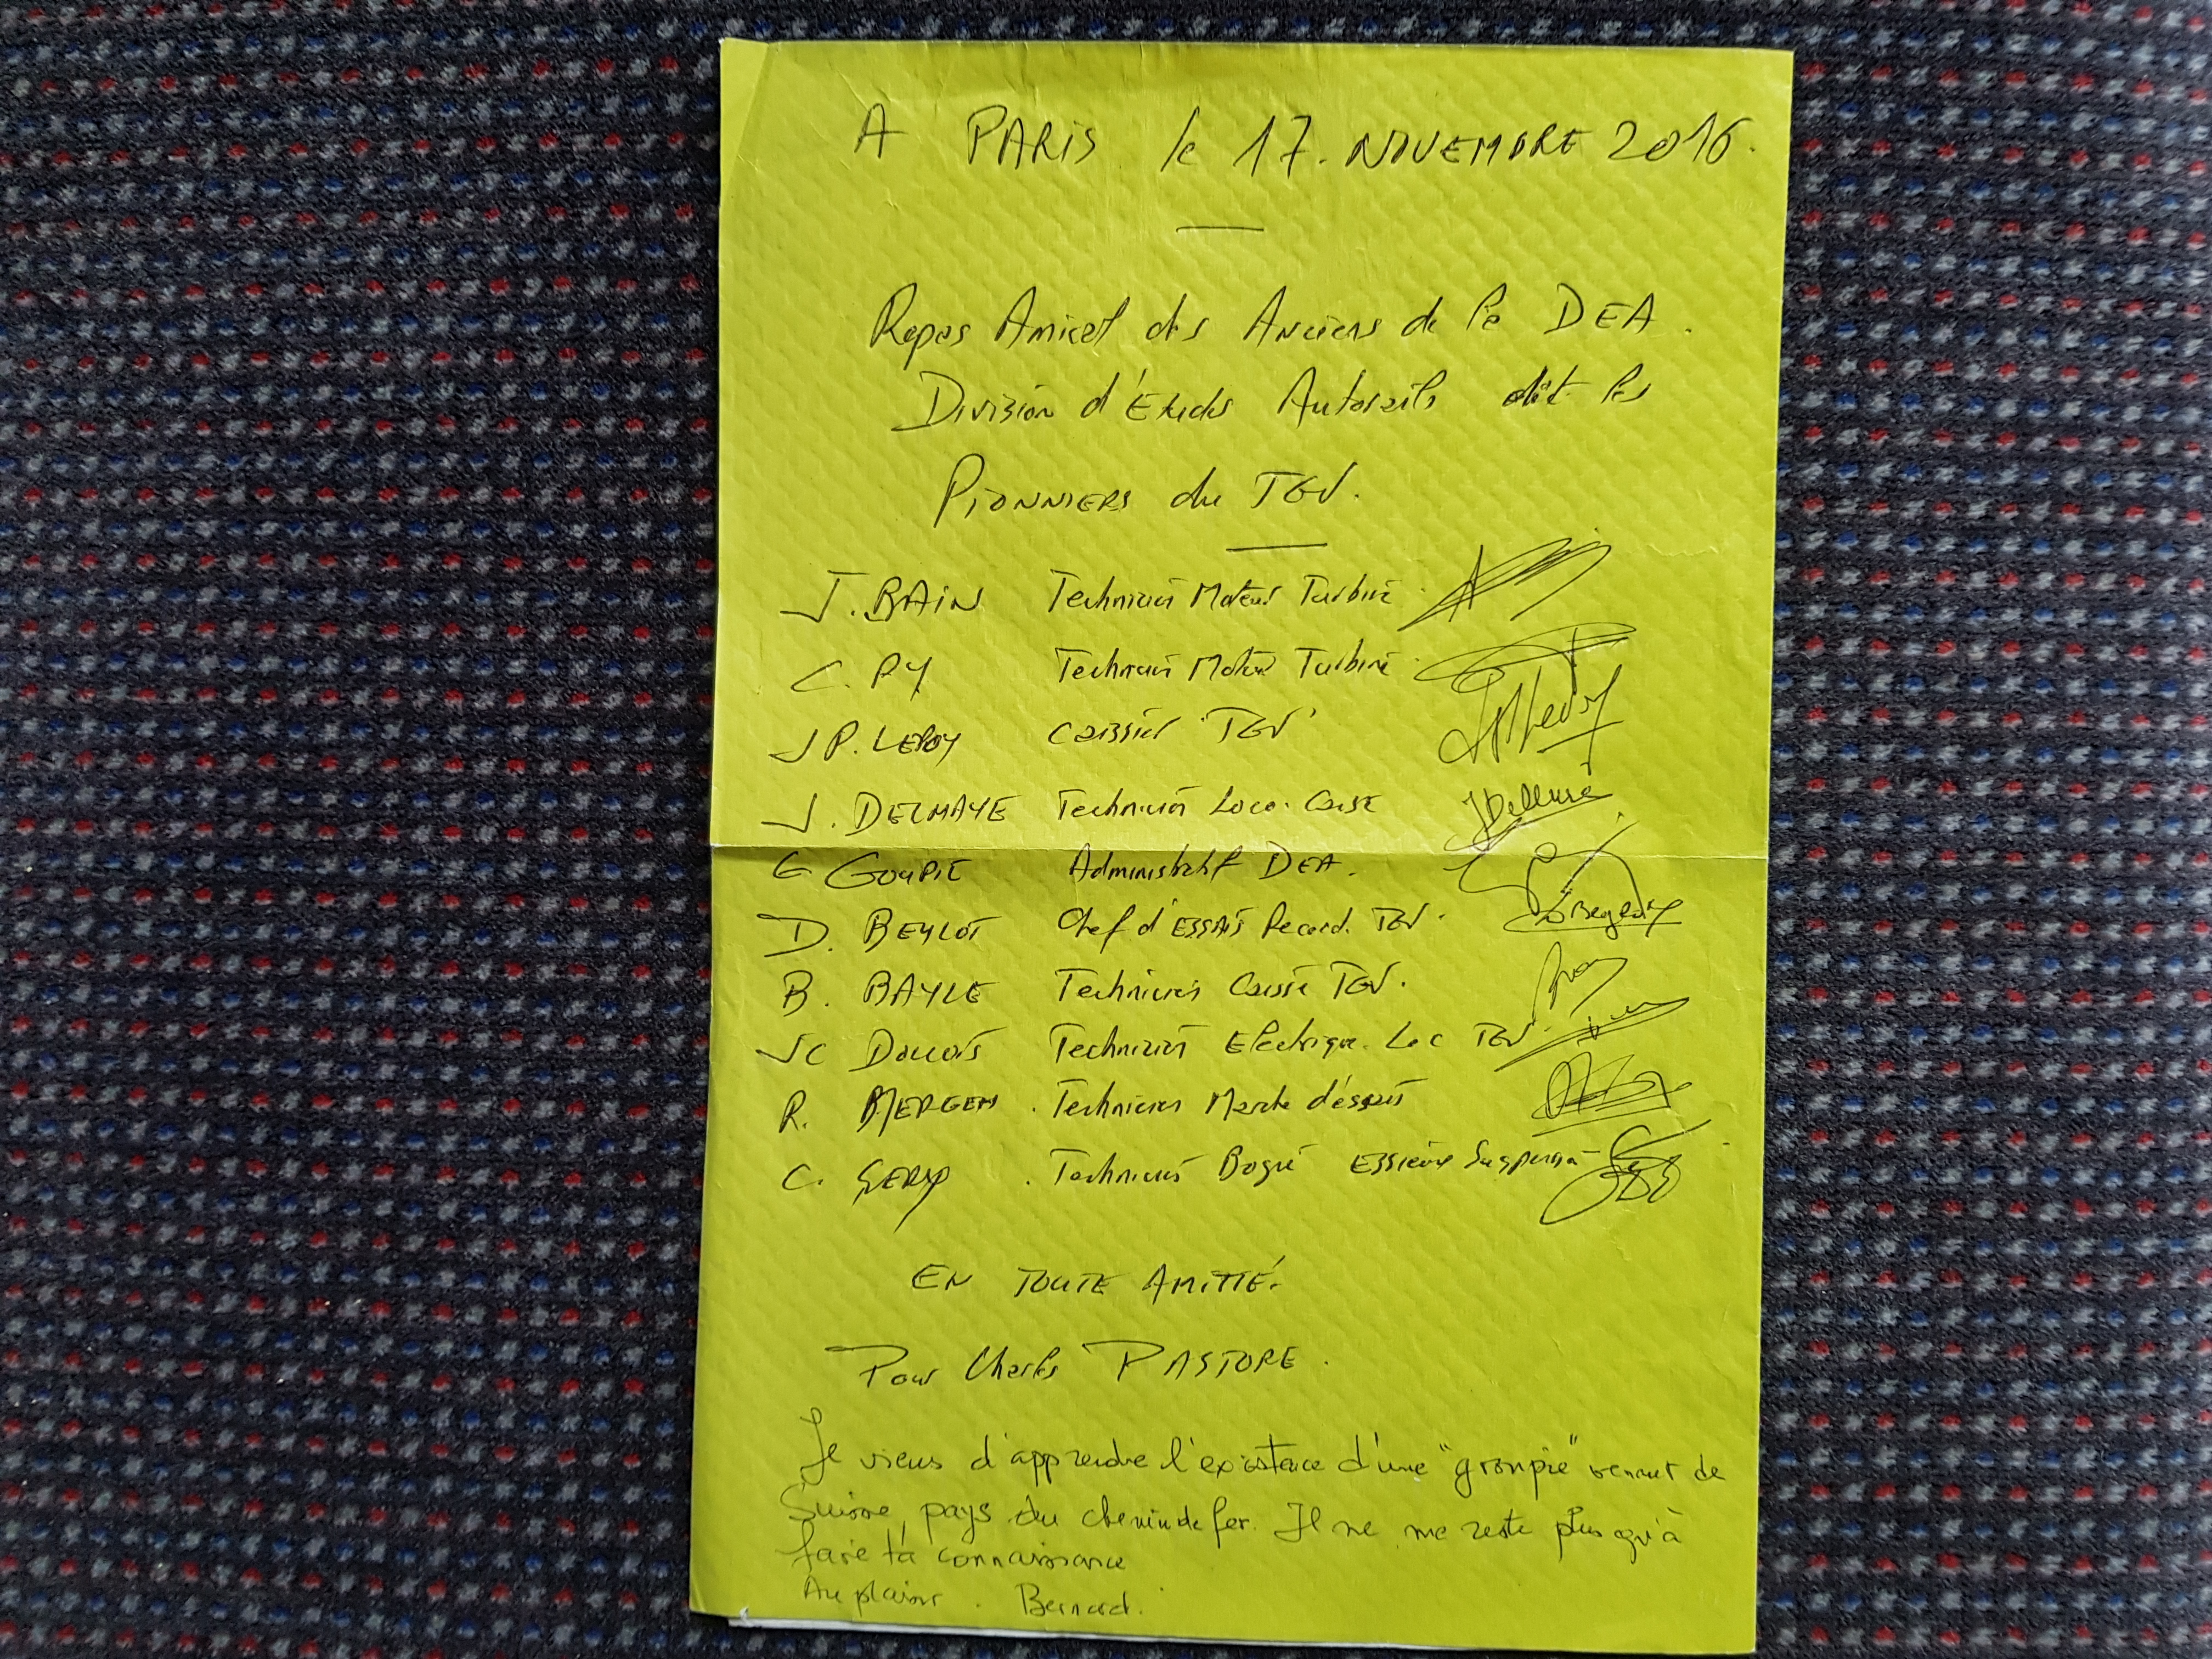 A PARIS le 17. NOVEMBRE 2016.
Repas Amical des Anciens de la DEA.
Division d'Etudes Autorails dit les
PIONNIERS du TGV.
J. BAIN Technicien Moteur Turbine.
C. PY Technicien Moteur Turbine.
J P. LEROY Caissier "TGV"
J. DELMAYE Technicien Loco. Caisse
G GOUPIL Administratif DEA.
D. BEYLOT Chef d'ESSAIS Record. TGV.
B. BAYLE Technicien Caisse TGV.
JC Technicien Electrique Loc TGV.
R. MERGEN. Technicien Marche d'essais
C. . Technicien Bogie Essieux Suspension
EN TOUTE AMITIÉ.
Pour Charles PASTORE.
Je viens d'apprendre l'existence d'une "groupie" venant de
Suisse, pays du chemin de fer. Il ne me reste plus qu'à
faire ta connaissance
Au plaisir. Bernard.